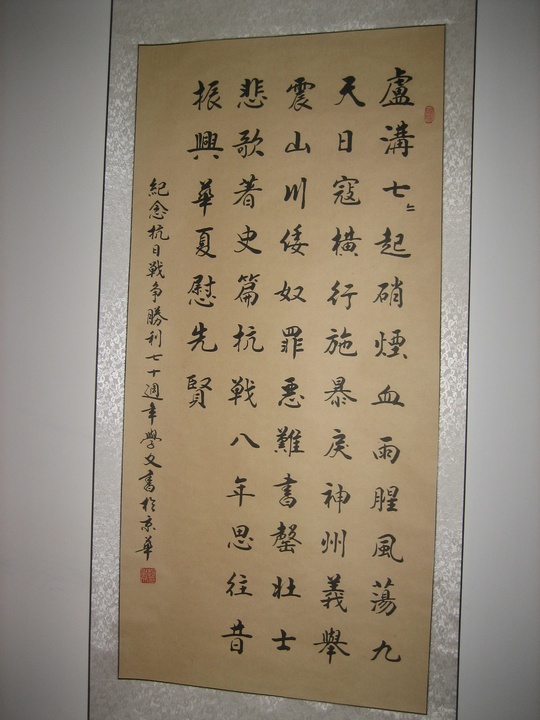 盧溝七七起硝煙血雨腥風蕩九
天日寇橫行施暴戾神州義舉
震山川倭奴罪惡難書罄壯士
悲歌著史篇抗戰八年思往昔
振興華夏慰先賢
紀念抗日戰争勝利七十週年學文書於京華